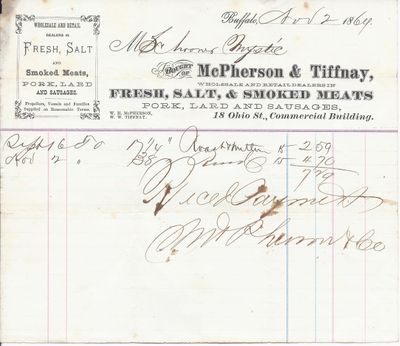 WHOLESALE AND RETAIL
DEALERS IN
FRESH, SALT
AND
Smoked Meats,
PORK, LARD
AND SAUSAGES.
Propellors, Vessels and Families
Supplied on Reasonable Terms.
Buffalo, Nov 2 1864
M Schooner Mystic
BOUGHT OF McPherson & Tiffnay,
WHOLESALE AND RETAIL DEALERS IN
FRESH, SALT, & SMOKED MEATS
PORK, LARD AND SAUSAGES,
W. H. McPHERSON,
W. W. TIFFNAY.
18 Ohio St., Commercial Building.
Sept 16 17 1/4 " Roast Mutton 15 2 59
Nov 2 " 15 4 70
7 29
Payment
McPherson & Co